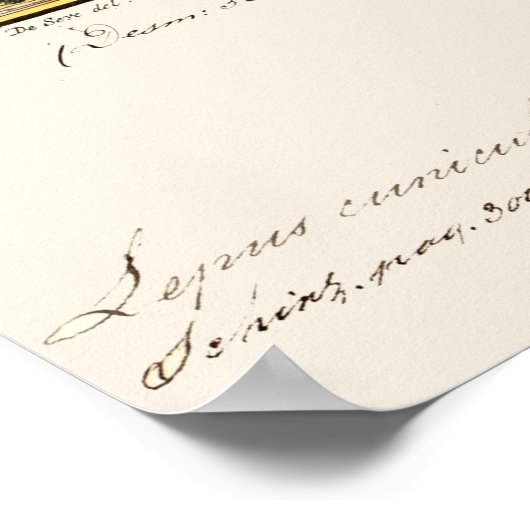 De Seve del.
(Desm: 3
Lepus cunicu
Schintz. pag. 300